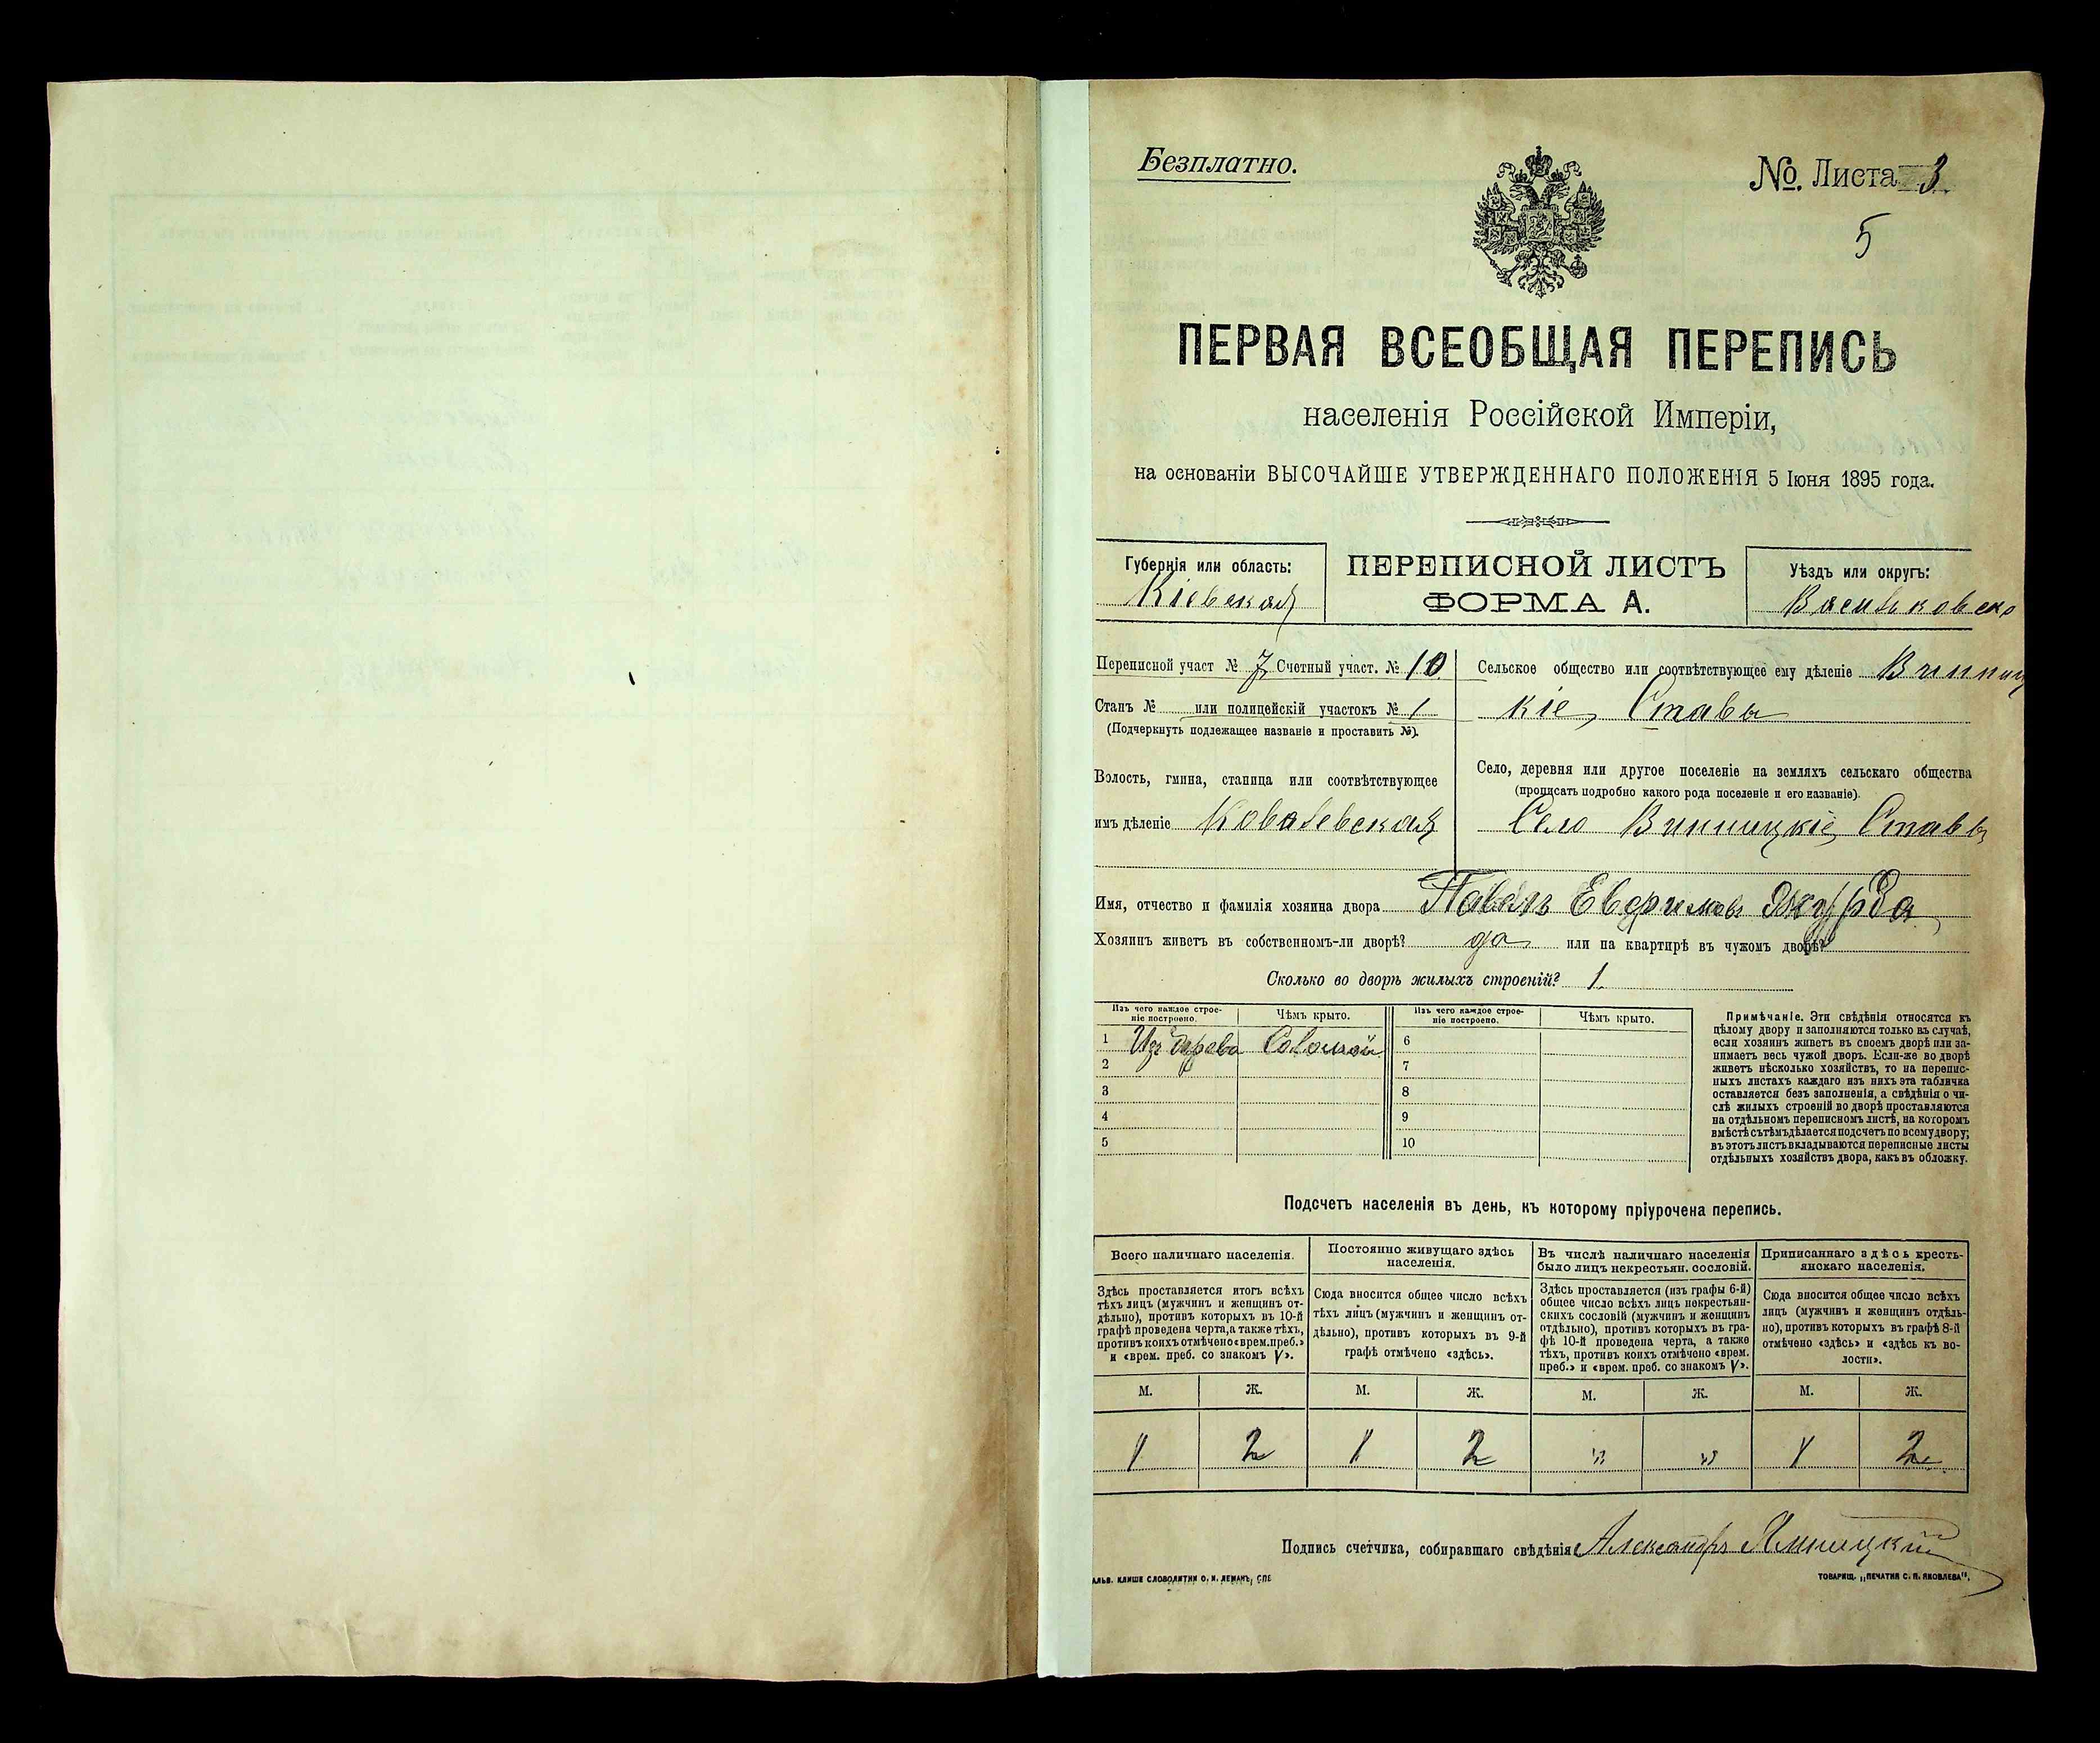 Безплатно.
№. Листа 3
5
ПЕРВАЯ ВСЕОБЩАЯ ПЕРЕПИСЬ
населенія Россійской Имперіи,
на основаніи ВЫСОЧАЙШЕ УТВЕРЖДЕННАГО ПОЛОЖЕНІЯ 5 Іюня 1895 года.
Губернія или область:
Кіевская
ПЕРЕПИСНОЙ ЛИСТЪ
ФОРМА А.
Уѣздъ или округъ:
Васильковско
Переписной участ № 7 Счетный участ. № 10
Станъ № или полицейскій участокъ № 1
(Подчеркнуть подлежащее названіе и проставить №).
Волость, гмина, станица или соотвѣтствующее
имъ дѣленіе Ковалевская
Сельское общество или соотвѣтствующее ему дѣленіе Винниц
кіе Ставы
Село, деревня или другое поселеніе на земляхъ сельскаго общества
(прописать подробно какого рода поселеніе и его названіе).
Село Винницкіе Ставы
Имя, отчество и фамилія хозяина двора Павелъ Евфимовъ Джурда
Хозяинъ живетъ въ собственномъ-ли дворѣ? да или на квартирѣ въ чужомъ дворѣ?
Сколько во дворѣ жилыхъ строеній? 1.
Изъ чего каждое строе-
ніе построено.
Чѣмъ крыто.
Изъ чего каждое строе-
ніе построено.
Чѣмъ крыто.
1 Изъ дерева Соломой 6
2 7
3 8
4 9
5 10
Примѣчаніе. Эти свѣдѣнія относятся къ
цѣлому двору и заполняются только въ случаѣ,
если хозяинъ живетъ въ своемъ дворѣ или за-
нимаетъ весь чужой дворъ. Если-же во дворѣ
живетъ нѣсколько хозяйствъ, то на перепис-
ныхъ листахъ каждаго изъ нихъ эта табличка
оставляется безъ заполненія, а свѣдѣнія о чи-
слѣ жилыхъ строеній во дворѣ проставляются
на отдѣльномъ переписномъ листѣ, на которомъ
вмѣстѣ съ тѣмъ дѣлается подсчетъ по всему двору;
въ этотъ листъ вкладываются переписные листы
отдѣльныхъ хозяйствъ двора, какъ въ обложку.
Подсчетъ населенія въ день, къ которому пріурочена перепись.
Всего наличнаго населенія.
Здѣсь проставляется итогъ всѣхъ
тѣхъ лицъ (мужчинъ и женщинъ от-
дѣльно), противъ которыхъ въ 10-й
графѣ проведена черта, а также тѣхъ,
противъ коихъ отмѣчено «врем. преб.»
и «врем. преб. со знакомъ V».
Постоянно живущаго здѣсь
населенія.
Сюда вносится общее число всѣхъ
тѣхъ лицъ (мужчинъ и женщинъ от-
дѣльно), противъ которыхъ въ 9-й
графѣ отмѣчено «здѣсь».
Въ числѣ наличнаго населенія
было лицъ некрестьян. сословій.
Здѣсь проставляется (изъ графы 6-й)
общее число всѣхъ лицъ некрестьян-
скихъ сословій (мужчинъ и женщинъ
отдѣльно), противъ которыхъ въ гра-
фѣ 10-й проведена черта, а также
тѣхъ, противъ коихъ отмѣчено «врем.
преб.» и «врем. преб. со знакомъ V».
Приписаннаго здѣсь кресть-
янскаго населенія.
Сюда вносится общее число всѣхъ
лицъ (мужчинъ и женщинъ отдѣль-
но), противъ которыхъ въ графѣ 8-й
отмѣчено «здѣсь» и «здѣсь къ во-
лости».
М. Ж. М. Ж. М. Ж. М. Ж.
1 2 1 2 " " 1 2
Подпись счетчика, собиравшаго свѣдѣнія Александръ
АЛЬВ. КЛИШЕ СЛОВОЛИТНИ О. И. ЛЕМАНЪ, СПБ
ТОВАРИЩ. „ПЕЧАТНЯ С. П. ЯКОВЛЕВА",